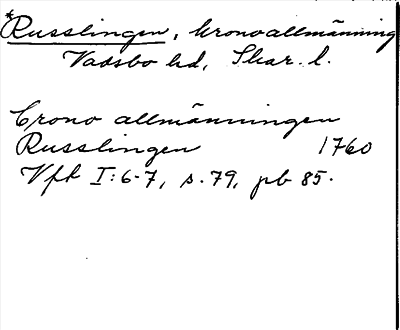 *Russlingen, kronoallmänning
Vadsbo hd, Skar. l.
Crono allmänningen
Russlingen 1760
Vfk I:6-7, s. 79, pb 85.